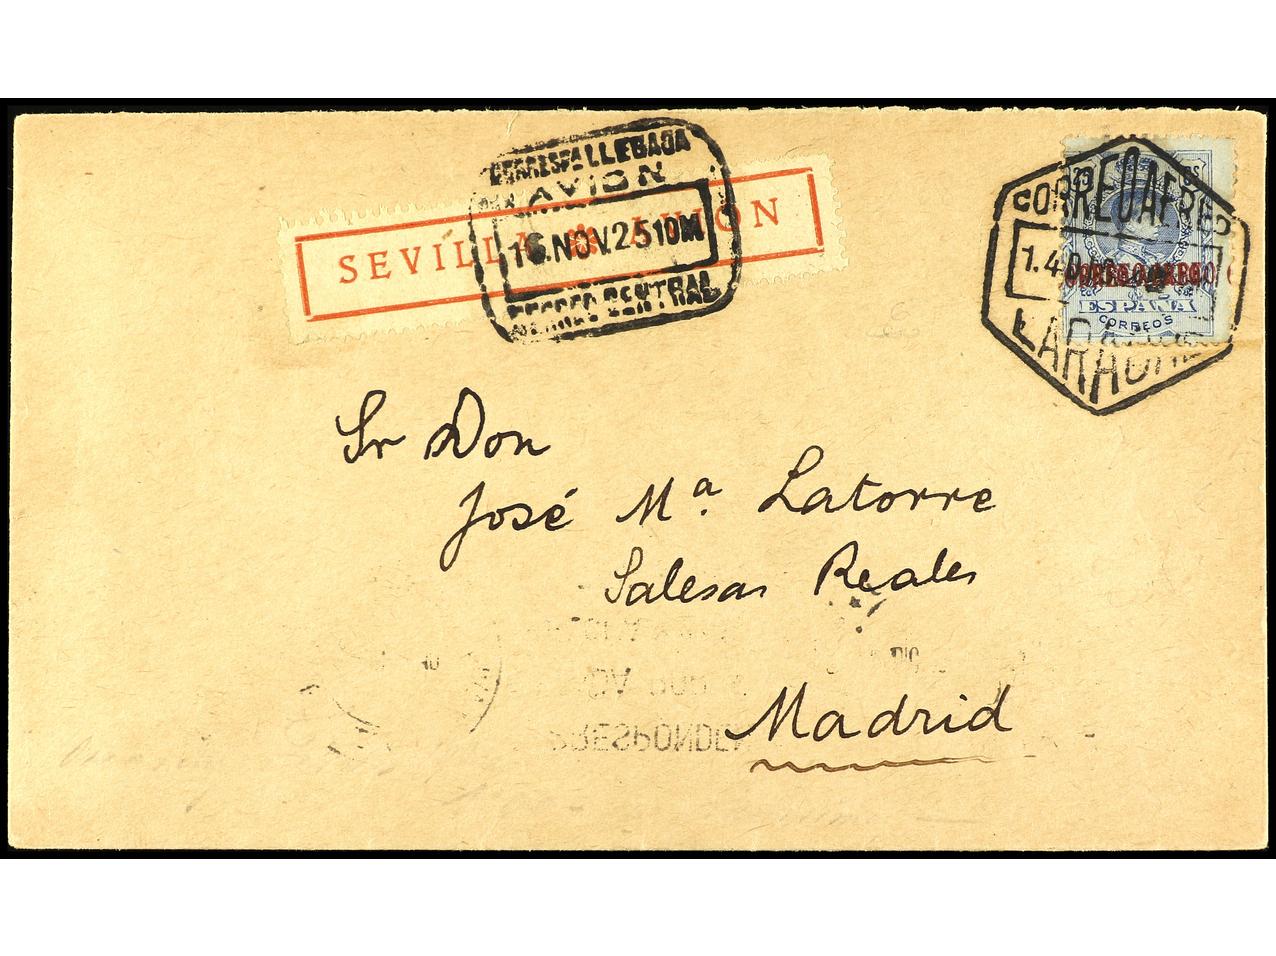 CORRESPA LLEGADA
AVION
16.NOV.25 10M
CORREO CENTRAL
SEVILLA AVION
CORREO AEREO
LARACHE
ESPAÑA
CORREOS
Sr Don
José Mª Latorre
Salesas Reales
Madrid